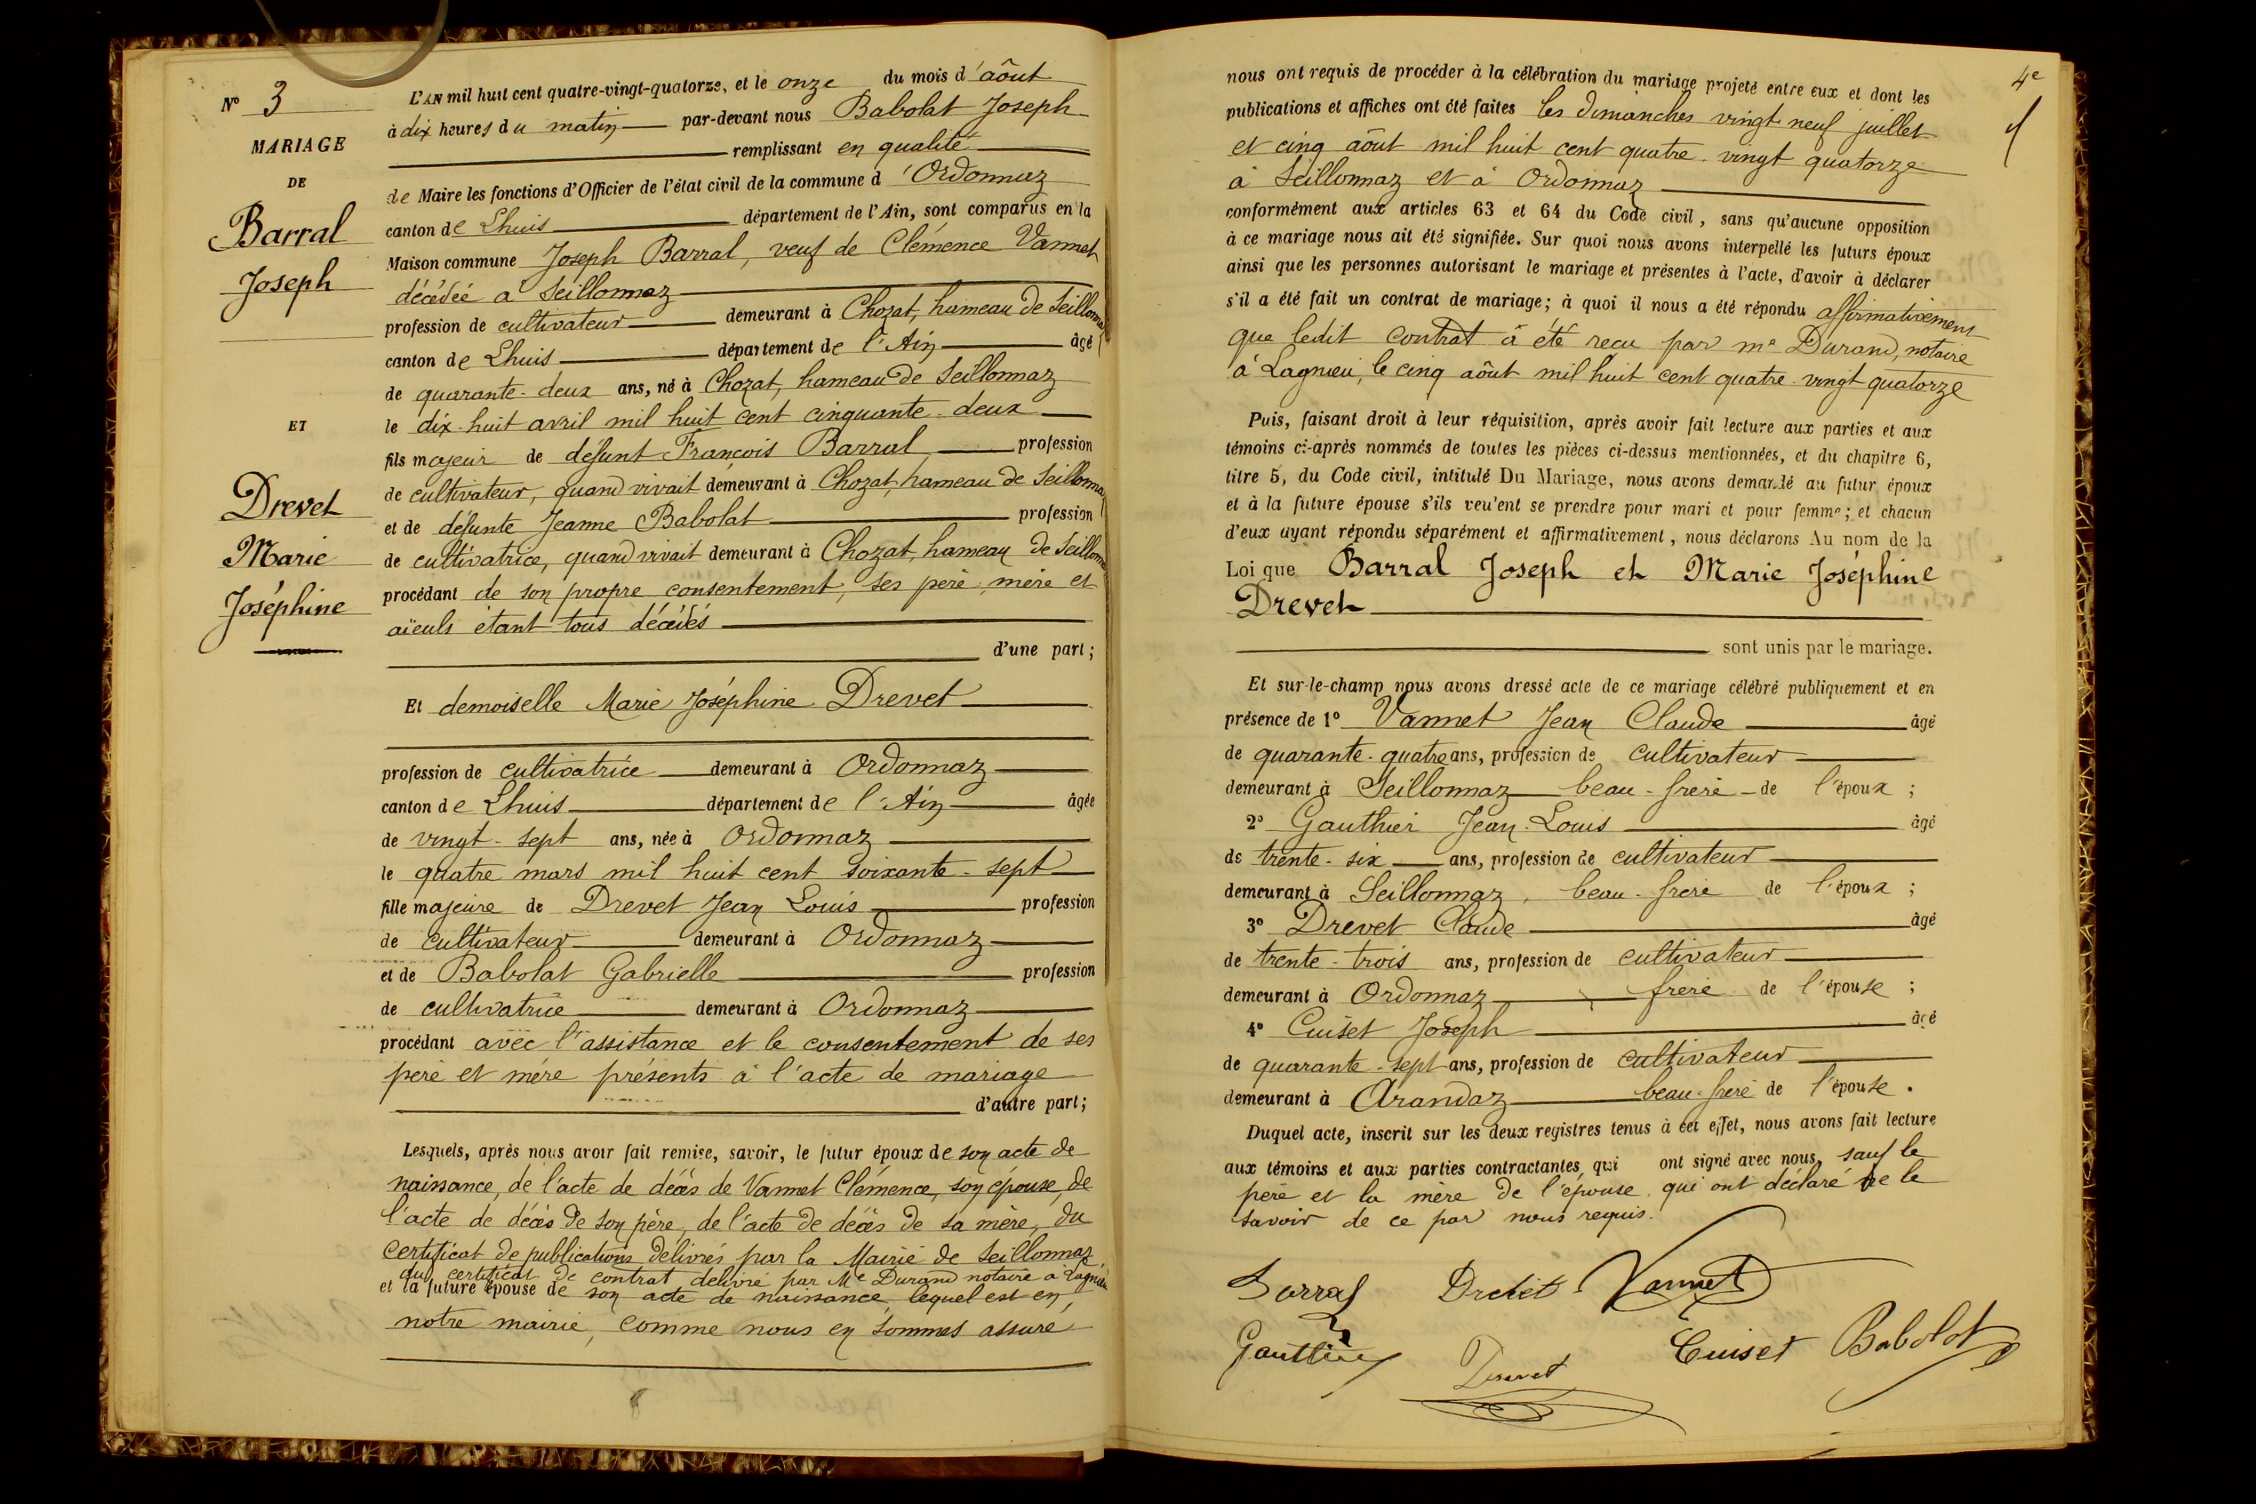 N° 3
MARIAGE
DE
Barral
Joseph
ET
Drevet
Marie
Joséphine
L'AN mil huit cent quatre-vingt-quatorze, et le onze du mois d'aôut
à dix heures du matin par-devant nous Babolat Joseph
remplissant en qualité
de Maire les fonctions d'Officier de l'état civil de la commune d'Ordonnaz
canton de Lhuis département de l'Ain, sont comparus en la
Maison commune Joseph Barral, veuf de Clémence Vannet
décédée à Seillonnaz
profession de cultivateur demeurant à Chozat, hameau de Seillonnaz
canton de Lhuis département de l'Ain âgé
de quarante-deux ans, né à Chozat, hameau de Seillonnaz
le dix-huit avril mil huit cent cinquante-deux
fils majeur de défunt François Barral profession
de cultivateur, quand vivait demeurant à Chozat, hameau de Seillonnaz
et de défunte Jeanne Babolat profession
de cultivatrice, quand vivait demeurant à Chozat, hameau de Seillonnaz
procédant de son propre consentement, ses père, mère et
aïeuls étant tous décédés
d'une part;
Et demoiselle Marie Joséphine Drevet
profession de cultivatrice demeurant à Ordonnaz
canton de Lhuis département de l'Ain âgée
de vingt-sept ans, née à Ordonnaz
le quatre mars mil huit cent soixante-sept
fille majeure de Drevet Jean Louis profession
de cultivateur demeurant à Ordonnaz
et de Babolat Gabrielle profession
de cultivatrice demeurant à Ordonnaz
procédant avec l'assistance et le consentement de ses
père et mère présents à l'acte de mariage
d'autre part;
Lesquels, après nous avoir fait remise, savoir, le futur époux de son acte de
naissance, de l'acte de décès de Vannet Clémence, son épouse, de
l'acte de décès de son père, de l'acte de décès de sa mère, du
certificat de publications délivrés par la Mairie de Seillonnaz,
du certificat de contrat délivré par Me Durand notaire à Lagnieu
et la future épouse de son acte de naissance lequel est en
notre mairie, comme nous en sommes assuré
4e
nous ont requis de procéder à la célébration du mariage projeté entre eux et dont les
publications et affiches ont été faites les dimanches vingt neuf juillet
et cinq aôut mil huit cent quatre-vingt quatorze
à Seillonnaz et à Ordonnaz
conformément aux articles 63 et 64 du Code civil, sans qu'aucune opposition
à ce mariage nous ait été signifiée. Sur quoi nous avons interpellé les futurs époux
ainsi que les personnes autorisant le mariage et présentes à l'acte, d'avoir à déclarer
s'il a été fait un contrat de mariage; à quoi il nous a été répondu affirmativement
que ledit contrat à été reçu par me Durand, notaire
à Lagnieu, le cinq aôut mil huit cent quatre-vingt quatorze
Puis, faisant droit à leur réquisition, après avoir fait lecture aux parties et aux
témoins ci-après nommés de toutes les pièces ci-dessus mentionnées, et du chapitre 6,
titre 5, du Code civil, intitulé Du Mariage, nous avons demandé au futur époux
et à la future épouse s'ils veulent se prendre pour mari et pour femme; et chacun
d'eux ayant répondu séparément et affirmativement, nous déclarons Au nom de la
Loi que Barral Joseph et Marie Joséphine
Drevet
sont unis par le mariage.
Et sur-le-champ nous avons dressé acte de ce mariage célébré publiquement et en
présence de 1° Vannet Jean Claude âgé
de quarante-quatre ans, profession de cultivateur
demeurant à Seillonnaz beau-frère de l'époux;
2° Gauthier Jean-Louis âgé
de trente-six ans, profession de cultivateur
demeurant à Seillonnaz, beau-frère de l'époux;
3° Drevet Claude âgé
de trente-trois ans, profession de cultivateur
demeurant à Ordonnaz frère de l'épouse;
4° Cuiset Joseph âgé
de quarante-sept ans, profession de cultivateur
demeurant à Arandaz beau-frère de l'épouse.
Duquel acte, inscrit sur les deux registres tenus à cet effet, nous avons fait lecture
aux témoins et aux parties contractantes qui ont signé avec nous, sauf le
père et la mère de l'épouse qui ont déclaré ne le
savoir de ce par nous requis.
Barral Drevet Vannet
Gauthier Drevet Cuiset Babolat